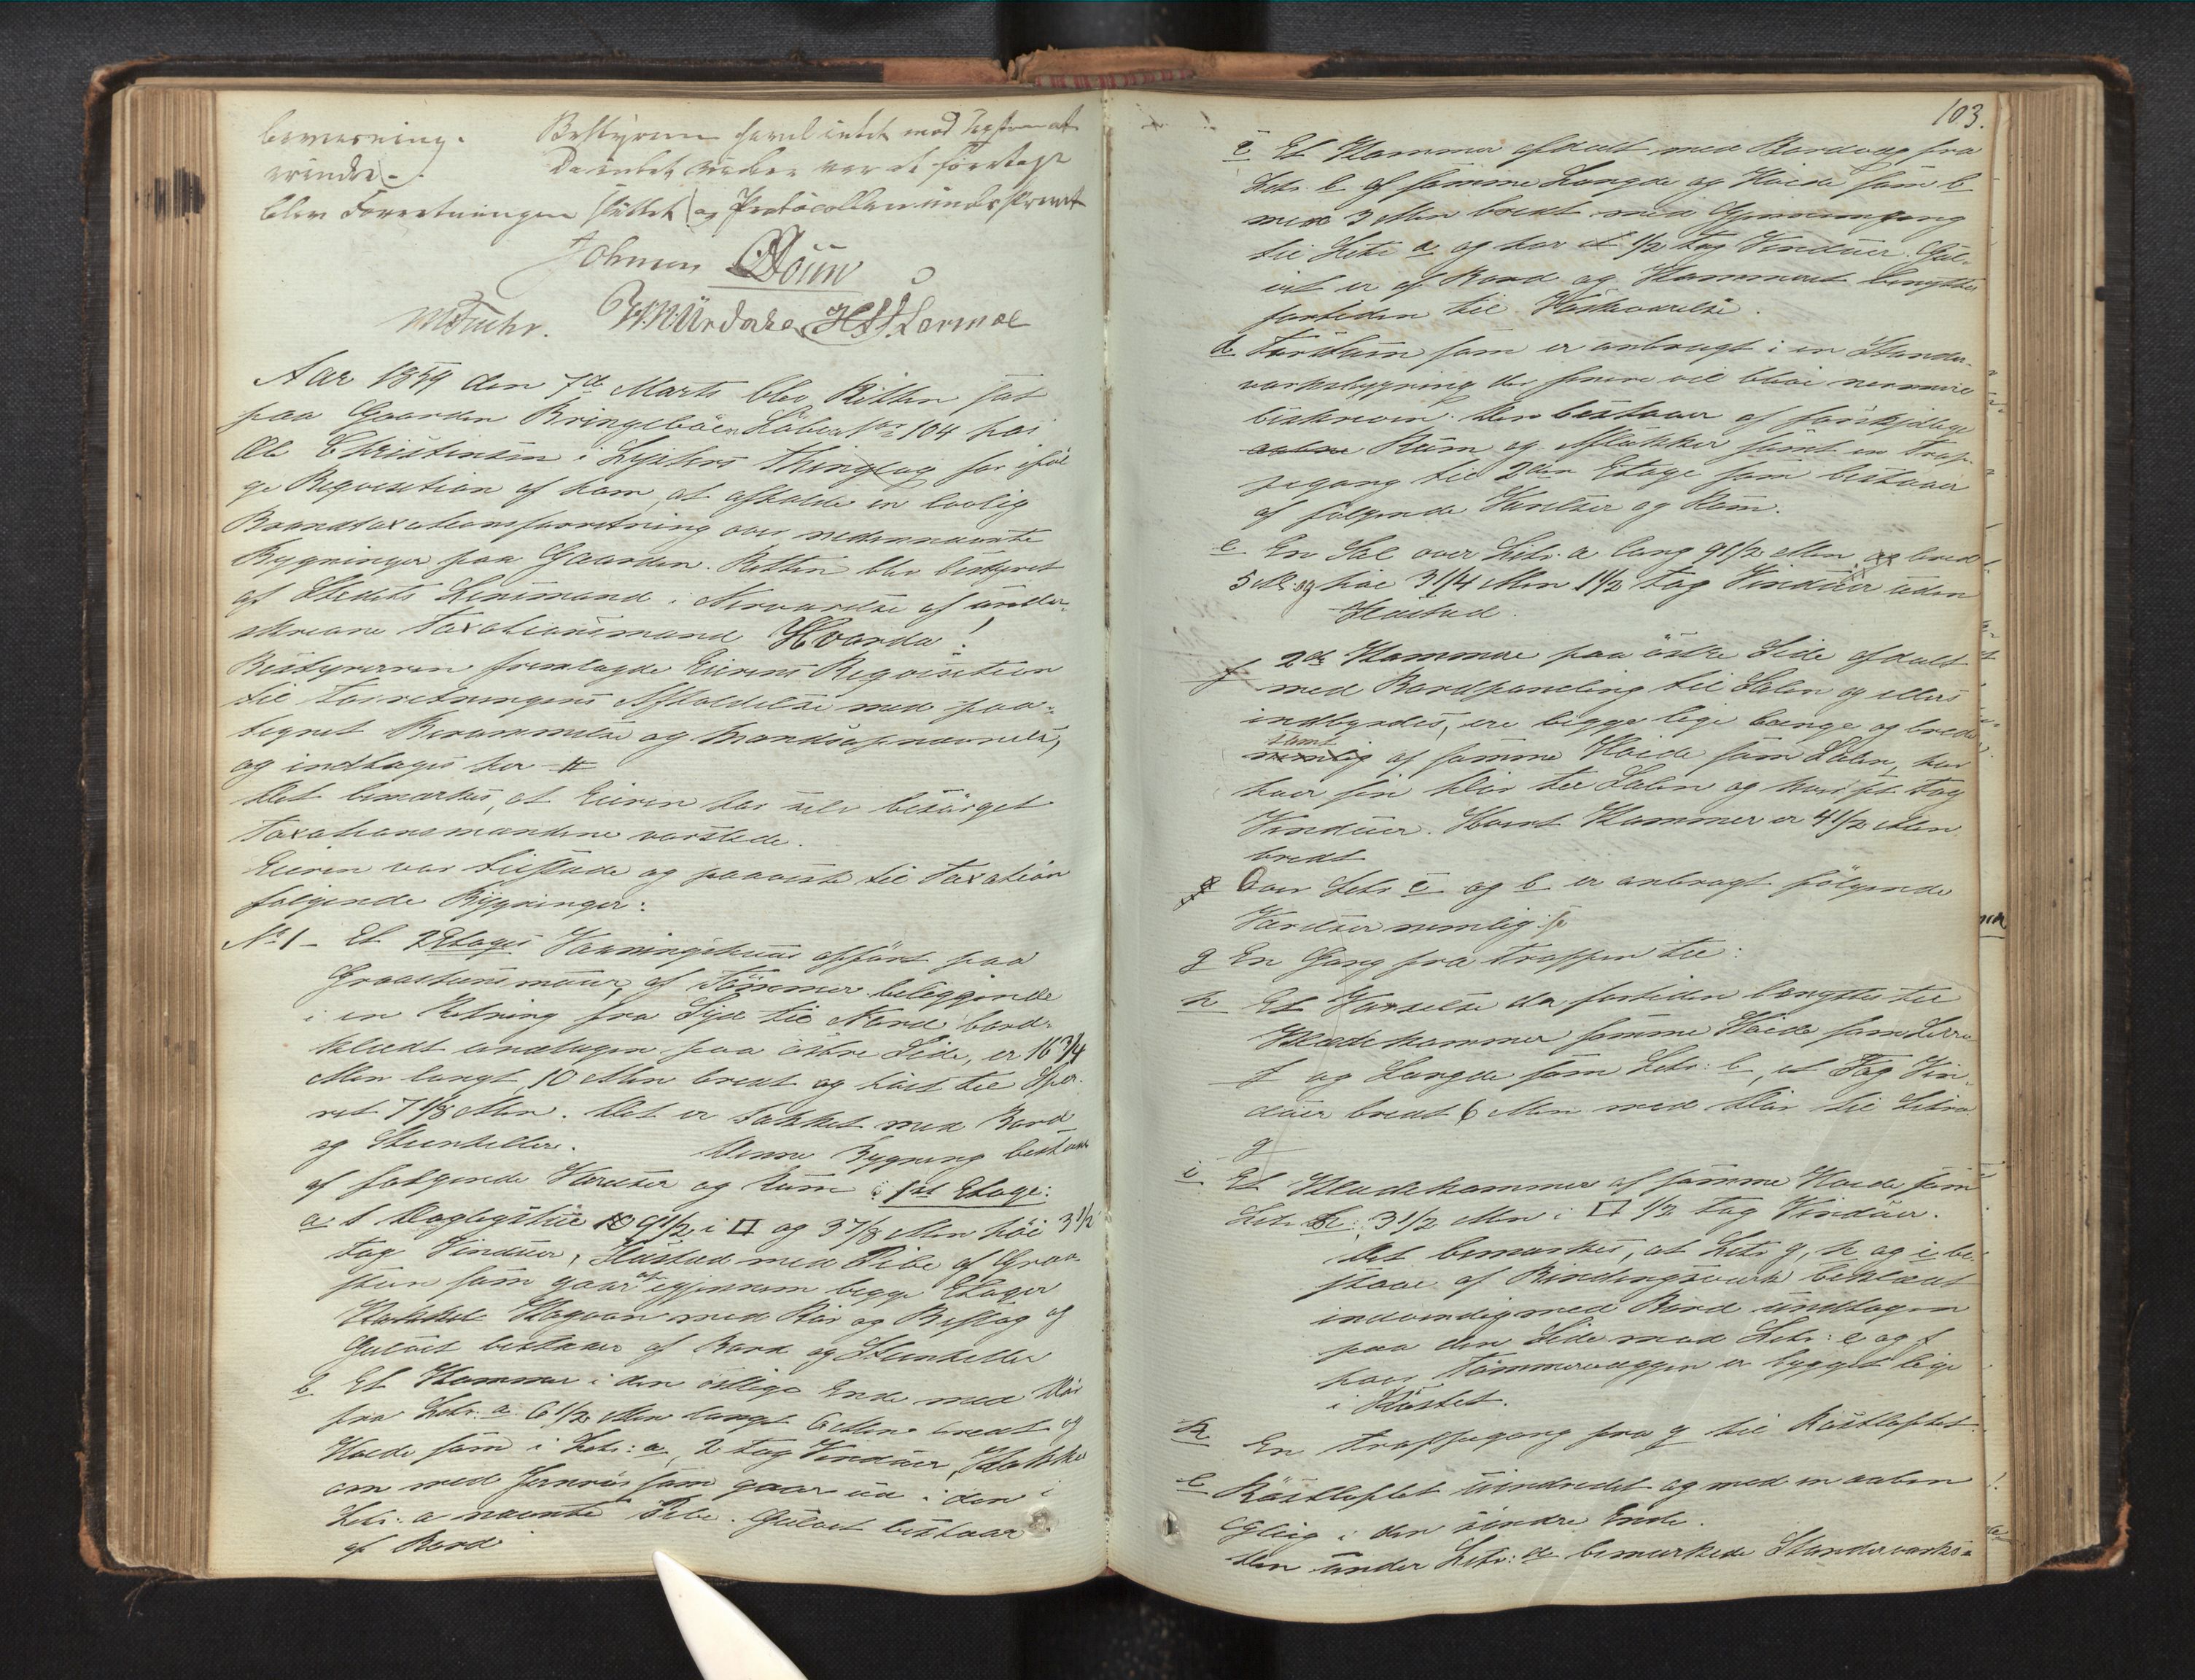 bemærkning. Bestyreren havde intet mod Taxten at
erindre. Da intet videre var at foretage
blev Forretningen sluttet og Protocollen underskrevet
Johnsen
M. Fuhr.
Aar 1859 den 7de Marts blev Retten sat
paa Gaarden Bringebøen Løbe No 104 hos
Ole Christensen i Lysters Thinglag for iføl
ge Requisition af ham at afholde en lovlig
Brandtaxationsforretning over nedennævnte
Bygninger paa Gaarden. Retten blev bestyret
af Stedets Lensmand i Nærværelse af under-
skrevne Taxationsmænd Hvorda!
Bestyreren fremlagde Eierens Reqvisition
til Forretningens Afholdelse med paa-
tegnet Berammelse og Mandsopnævnelse,
og indtages her #
Det bemærkes, at Eieren har selv besørget
Taxationsmændene varslede.
Eieren var tilstede og paaviste til Taxation
følgende Bygninger:
No 1 - Et 2 Etages Vaaningshuus opført paa
Graasteensmuur, af Tømmer beliggende
i en Retning fra Syd til Nord, bord-
klædt undtagen paa østre Side, er 16 3/4
Alen langt 10 Alen bredt og høit til Sper-
ret 7 1/8 Alen. Det er takket med Bord
og Steenheller. Denne Bygning bestaar
af følgende Værelser og Rum i 1ste Etage:
a. 1 Daglegstue 9 1/2 i □ og 3 7/8 Alen høi 3 1/2
Fag Vinduer, Ildsted med Pibe af Graa-
steen som gaar op igjennem begge Etager
Kakkelovn med Rør og Beslag og
Gulvet bestaaer af Bord og Steenheller
b Et Kammer i den østlige Ende med Dør
fra Litr. a. 6 1/2 Alen langt 6 Alen bredt og
Høide som i Litr: a, 2 Fag Vinduer, Kakkel
ovn med Jernrør som gaar ud i den i
Litr: a nævnte Pibe. Gulvet bestaar
af Bord
103.
c Et Kammer afdeelt med Bordvæg fra
Litr. b af samme Længde og Høide som b
men 3 Alen bredt med Gjennemgang
til Litr. a og har et 1/2 Fag Vinduer. Gul-
vet er af Bord og Kammeret benyttes
fortiden til Kjøkværelse.
d Forstuen som er anbragt i en Stander-
værksbygning der senere vil blive nærmere
beskreven. Den bestaaer af forskjellige
aabne Rum og Aflukker samt en Trap-
pegang til 2den Etage som bestaaer
af følgende Værelser og Rum.
e En Sal over Litr. a lang 9 1/2 Alen, og bred
5 Al. og høi 3 1/4 Alen 1 1/2 Fag Vinduer uden
Ildsted.
f 2de Kammere paa østre Side afdeelt
med Bordpaneling til Salen og ellers
indbyrdes, ere begge lige lange og brede
nemlig samt af samme Høide som Salen, har
hver sin Dør til Salen og hver sit Fag
Vinduer. Hvert Kammer er 4 1/2 Alen
bredt
Over Litr c og b er anbragt følgende
Værelser nemlig:
g En Gang fra Trappen til:
h Et Værelse der fortiden benyttes til
Klædekammer samme Høide som Litra
f og Længde som Litr: b, et Fag Vin-
duer bredt 6 Alen med Dør til Litra
g
i Et Klædekammer af samme Høide som
Litr: 3 1/2 Alen i □ 1/2 Fag Vinduer.
Det bemærkes, at Litr g, h og i be-
staae af Bindingsværk beklædt
indvendig med Bord undtagen
paa den Side mod Litr: e og f
hvor Tømmervæggen er bygget lige
i Røstet.
k En Trappegang fra g til Røstloftet.
l Røstloftet uindredet og med en aaben
Glug i den søndre Ende.
Den under Litr: d bemærkede Standerværks-